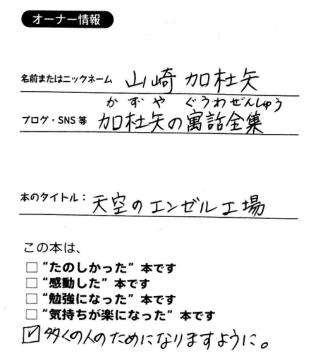 オーナー情報
名前またはニックネーム 山崎 加杜矢
かずや ぐうわぜんしゅう
ブログ・SNS等 加杜矢の寓話全集
本のタイトル： 天空のエンゼル工場
この本は、
□ “たのしかった” 本です
□ “感動した” 本です
□ “勉強になった” 本です
□ “気持ちが楽になった” 本です
☑ 多くの人のためになりますように。